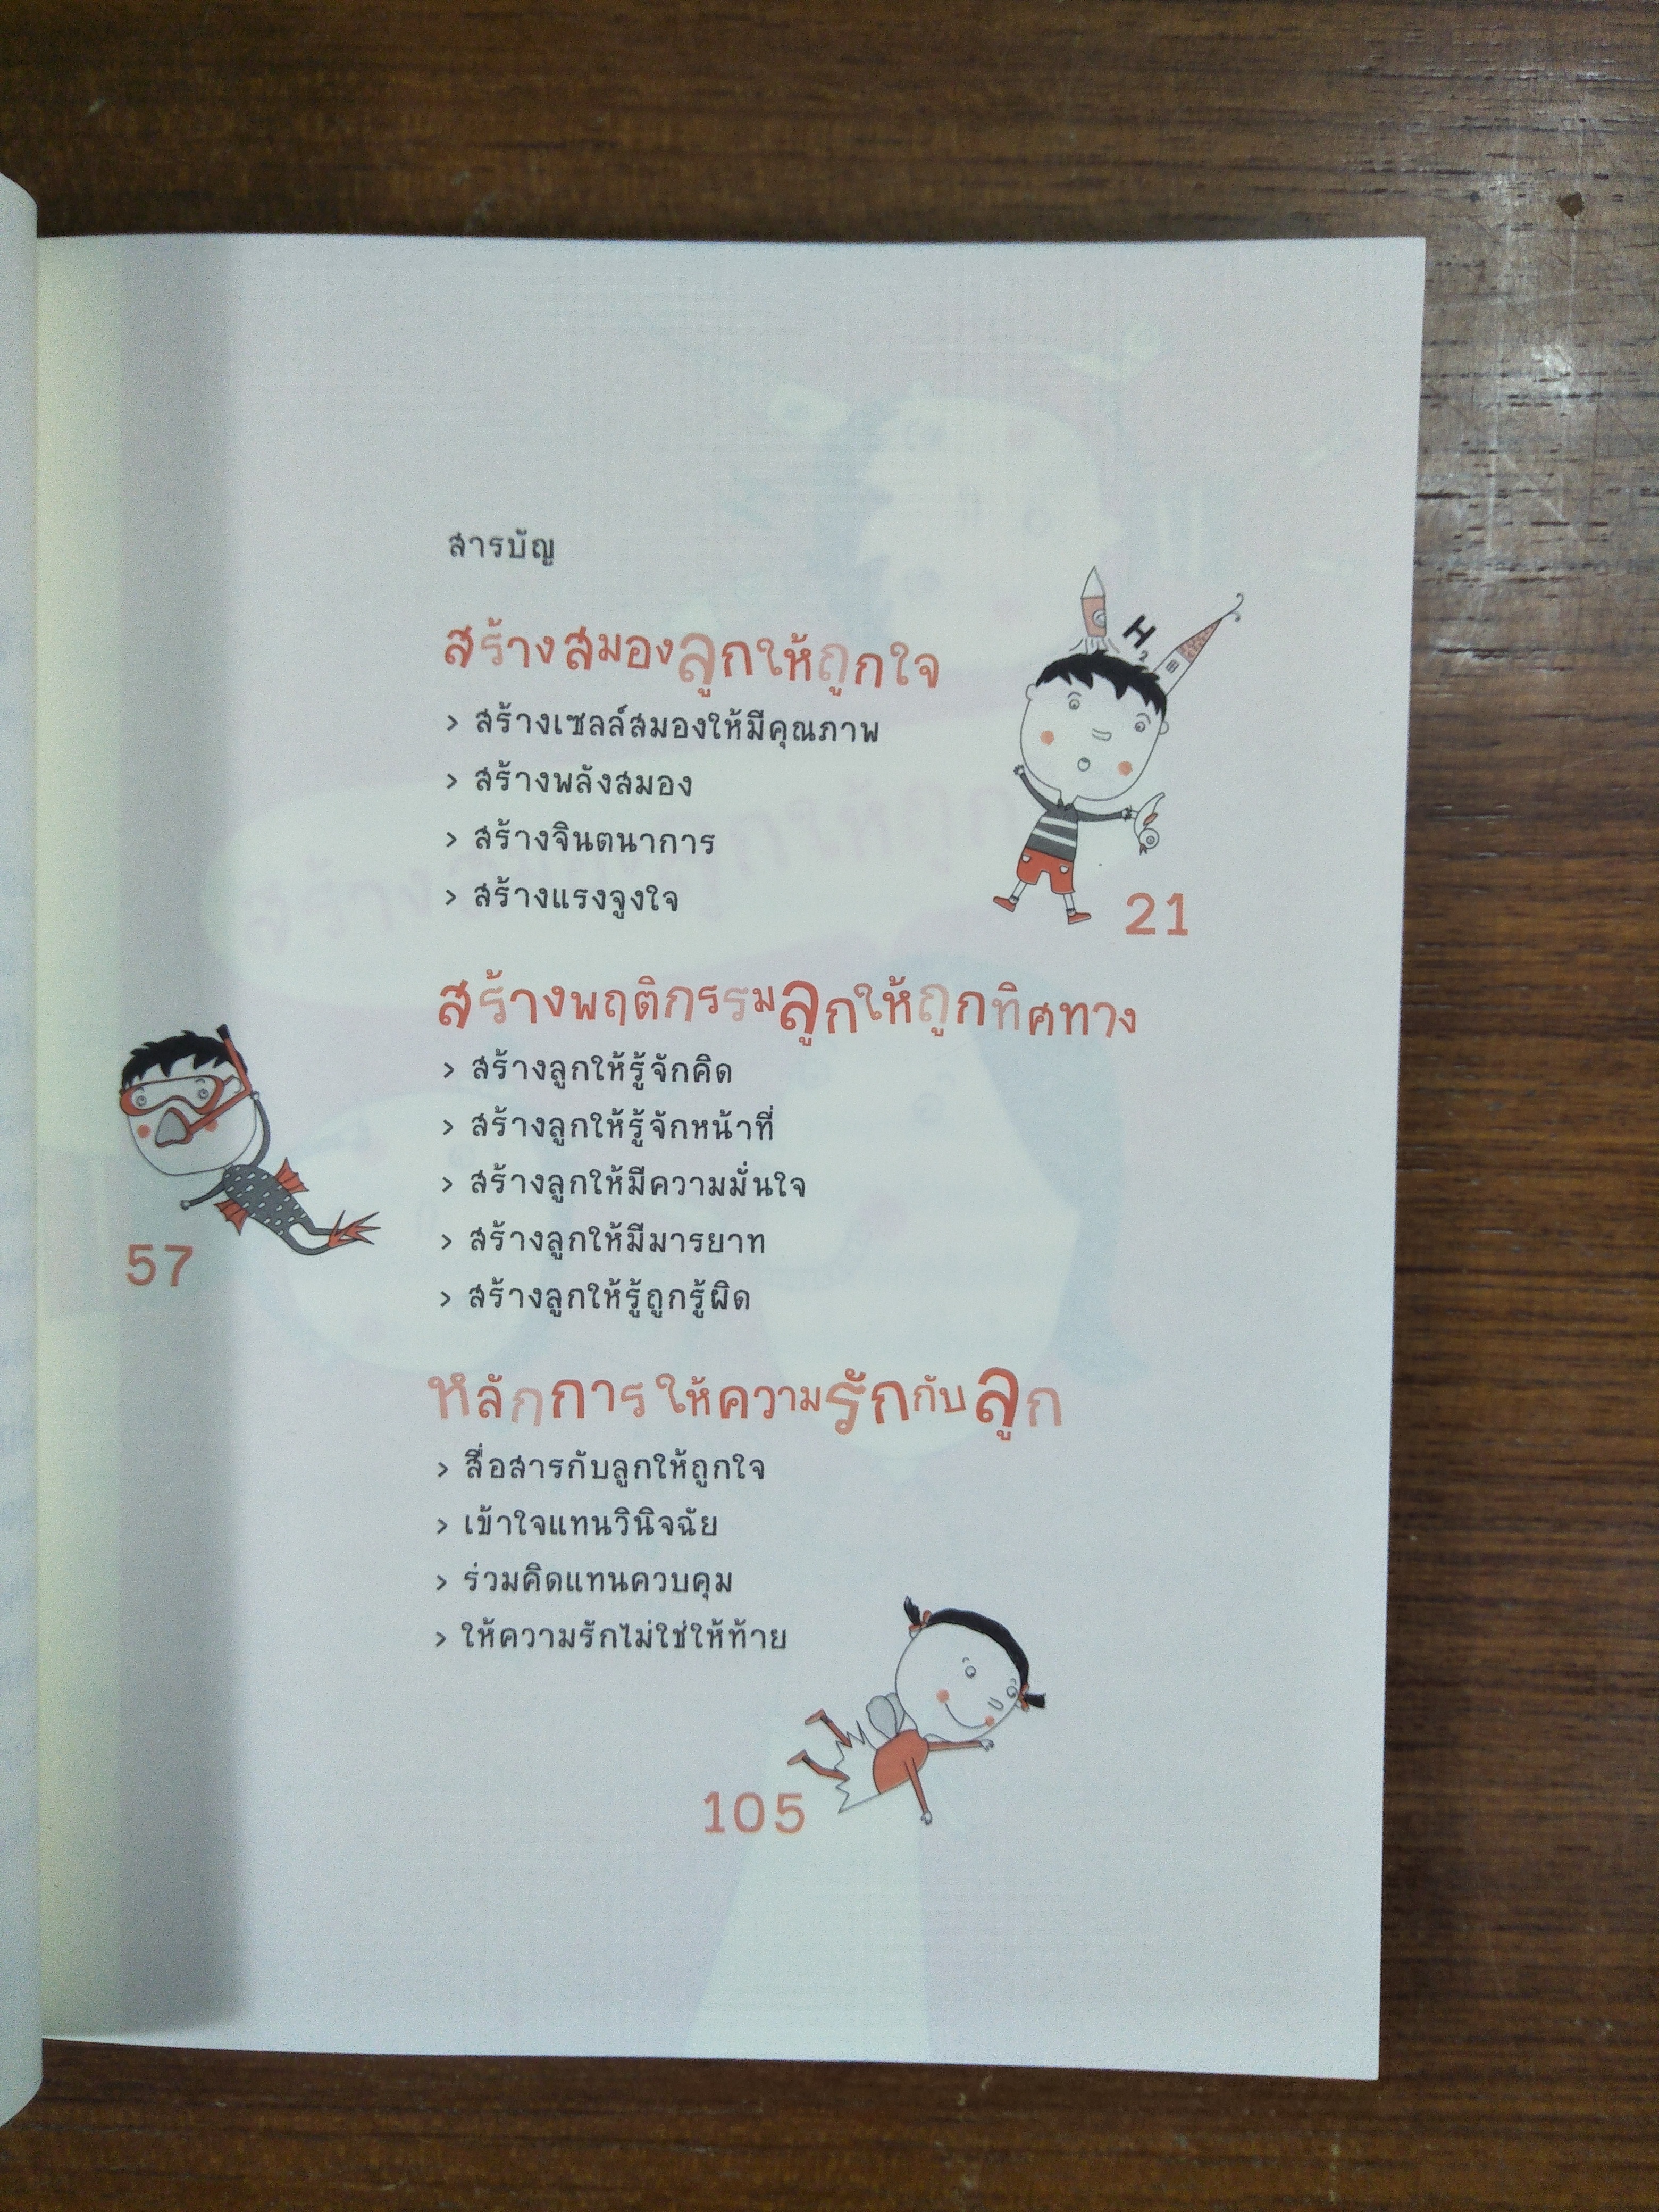 สารบัญ
สร้างสมองลูกให้ถูกใจ
> สร้างเซลล์สมองให้มีคุณภาพ
> สร้างพลังสมอง
> สร้างจินตนาการ
> สร้างแรงจูงใจ
H2
21
สร้างพฤติกรรมลูกให้ถูกทิศทาง
> สร้างลูกให้รู้จักคิด
> สร้างลูกให้รู้จักหน้าที่
> สร้างลูกให้มีความมั่นใจ
> สร้างลูกให้มีมารยาท
> สร้างลูกให้รู้ถูกรู้ผิด
57
หลักการให้ความรักกับลูก
> สื่อสารกับลูกให้ถูกใจ
> เข้าใจแทนวินิจฉัย
> ร่วมคิดแทนควบคุม
> ให้ความรักไม่ใช่ให้ท้าย
105